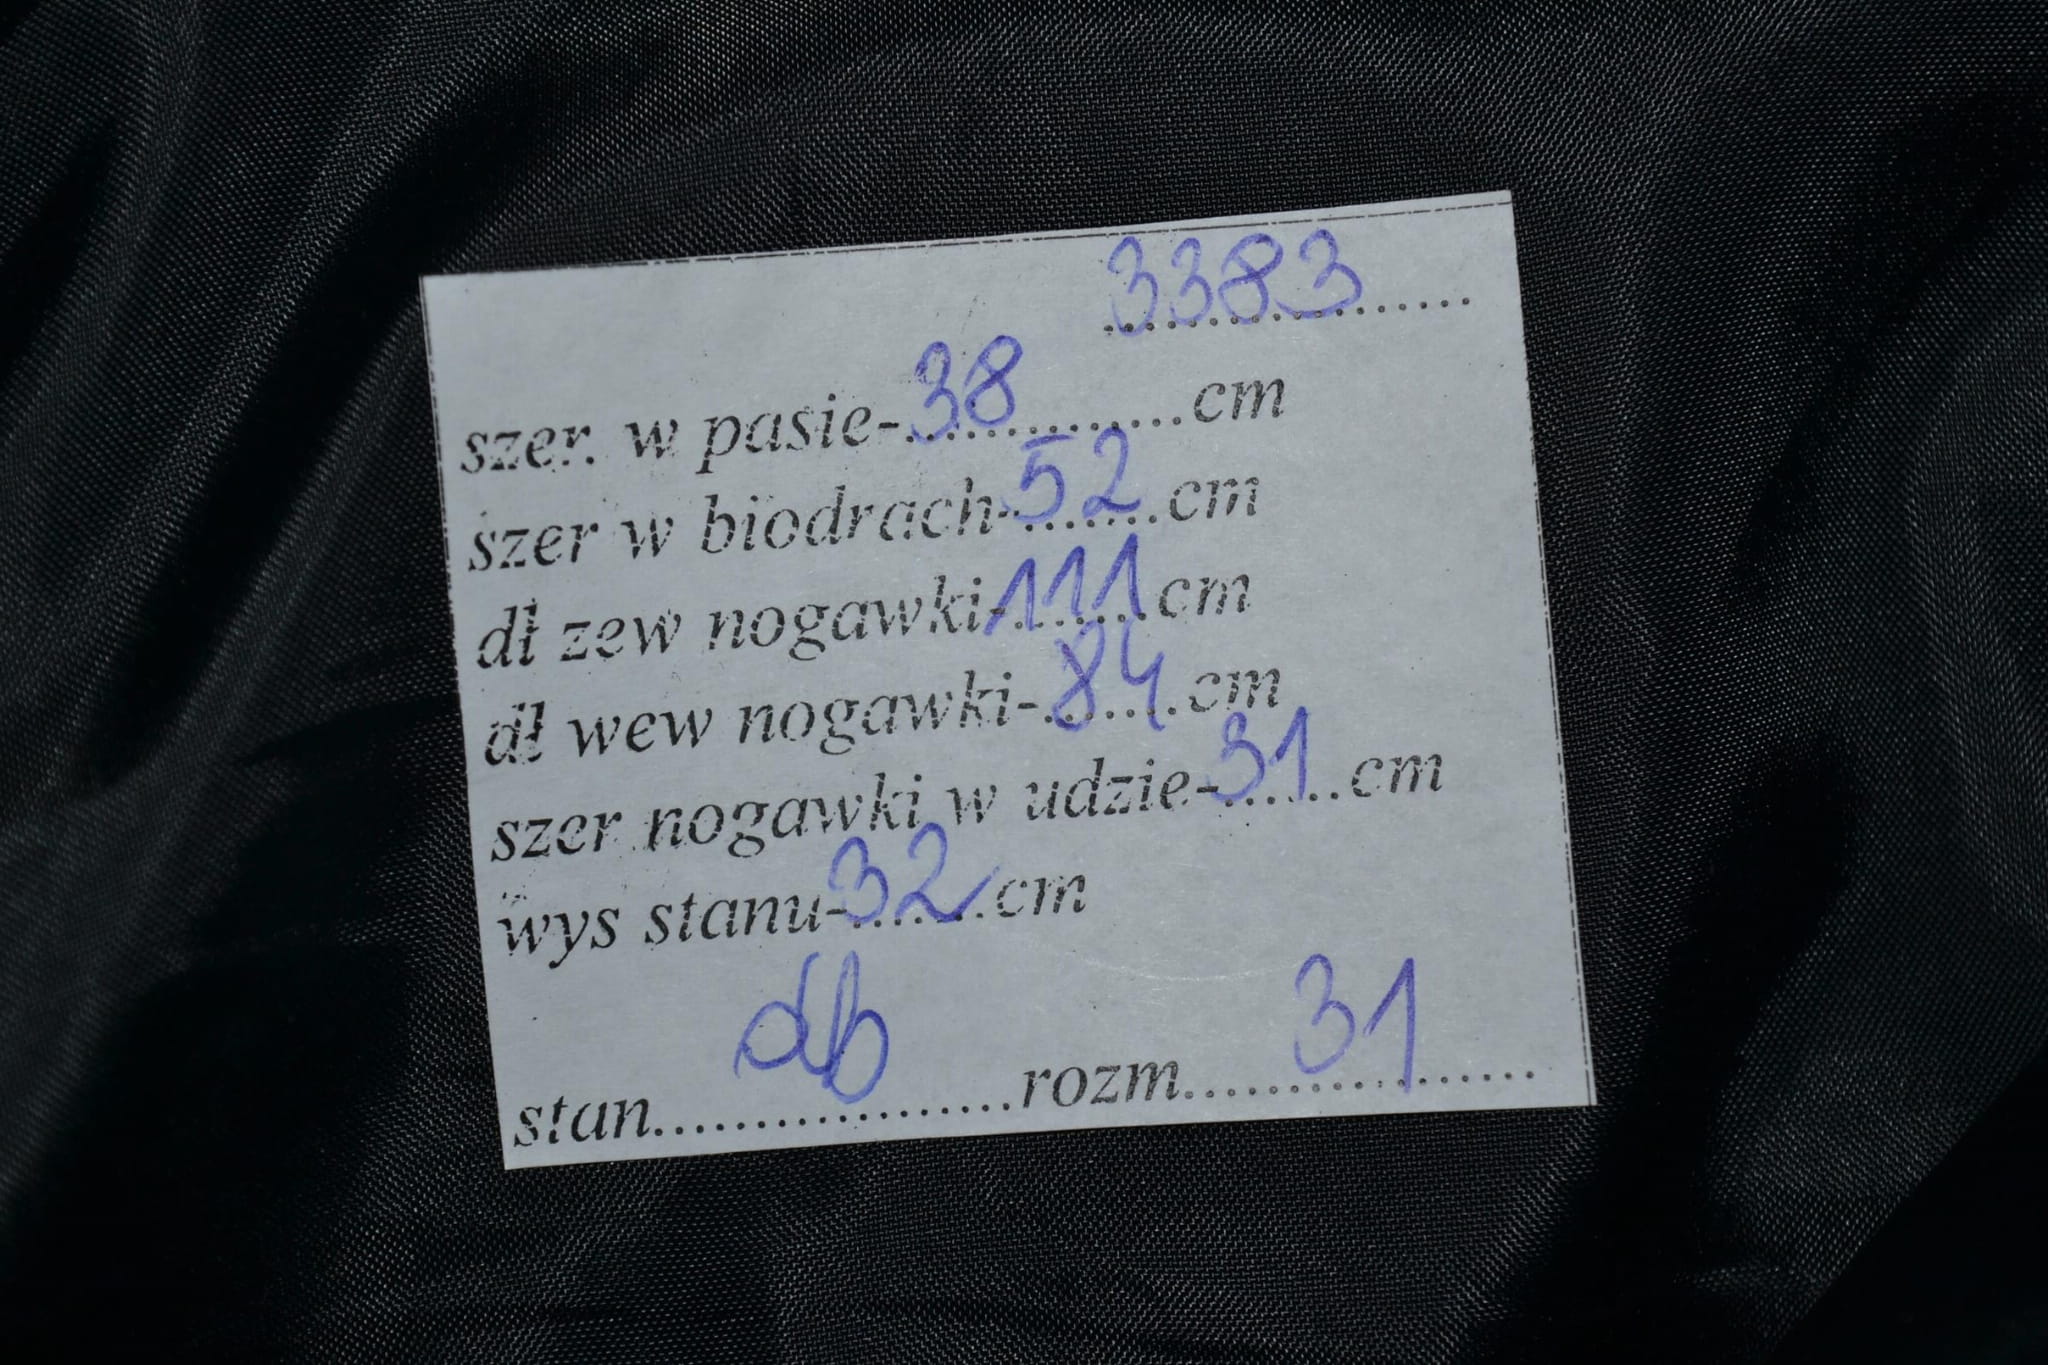 3383..................
szer. w pasie-38...............cm
szer w biodrach-52........cm
dł zew nogawki-111.......cm
dł wew nogawki-84.......cm
szer nogawki w udzie-31......cm
wys stanu-32......cm
stan....db..............rozm.....31.............